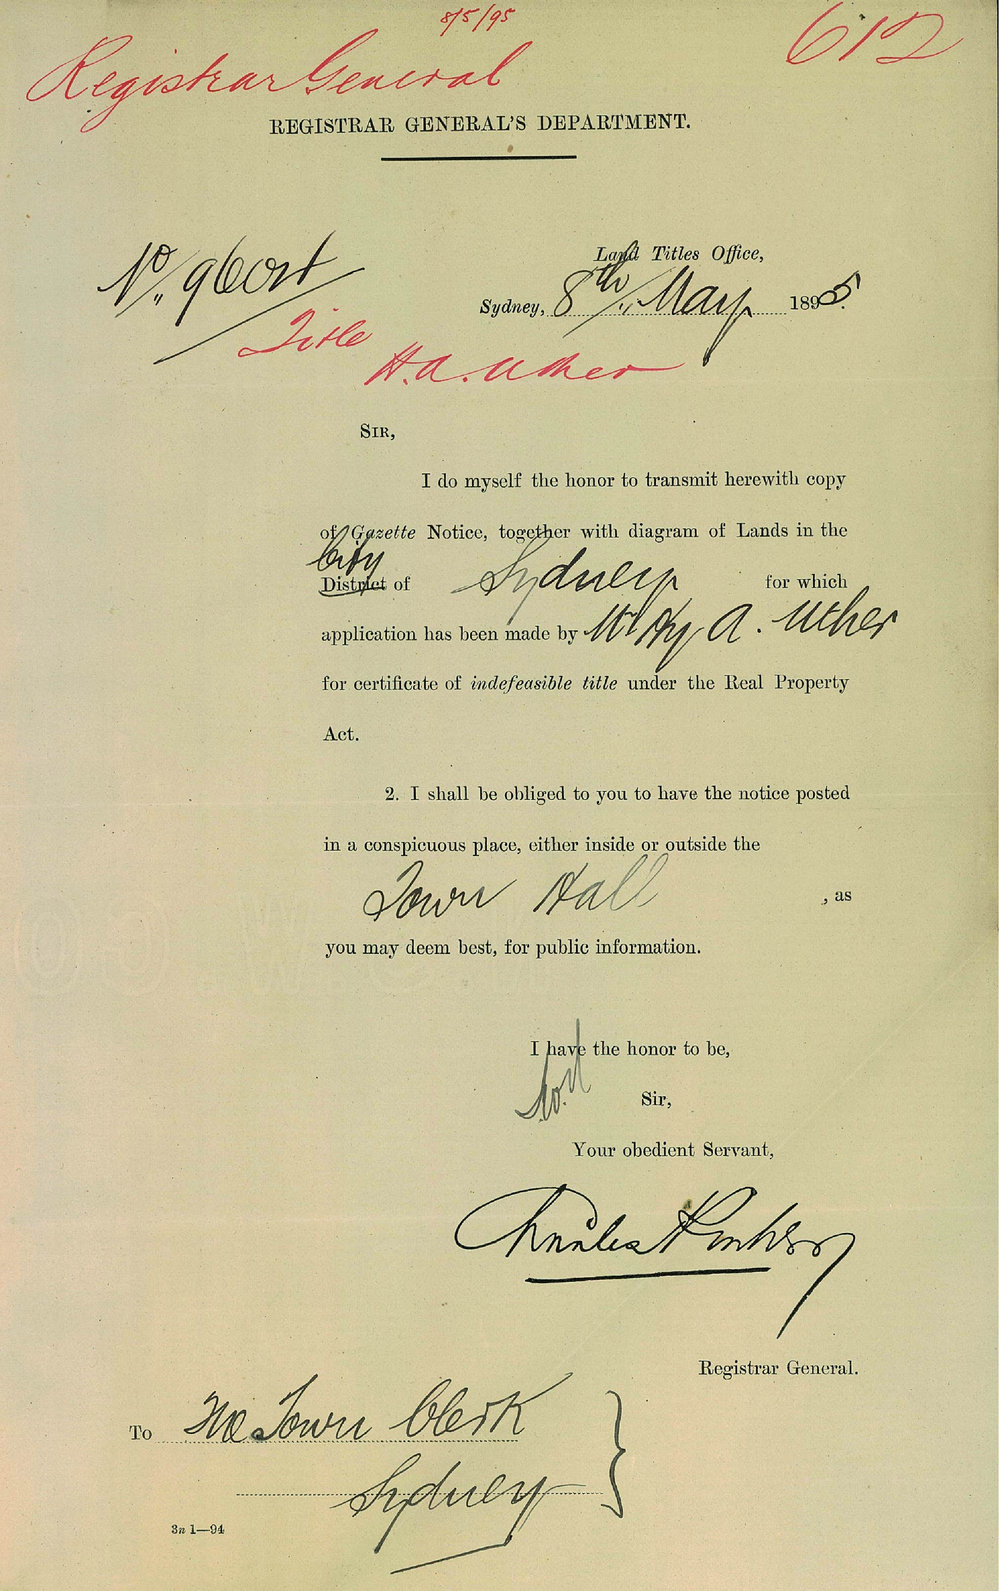 8/5/95
612
Registrar General
REGISTRAR GENERAL'S DEPARTMENT.
Land Titles Office,
No
Sydney, 8th May 1895.
Title
H. A. Uther
SIR,
I do myself the honor to transmit herewith copy
of Gazette Notice, together with diagram of Lands in the
City
District of Sydney for which
application has been made by Mr Hy A. Uther
for certificate of indefeasible title under the Real Property
Act.
2. I shall be obliged to you to have the notice posted
in a conspicuous place, either inside or outside the
Town Hall , as
you may deem best, for public information.
I have the honor to be,
Sir,
Your obedient Servant,
Charles
Registrar General.
To The Town Clerk
Sydney
3n 1—94